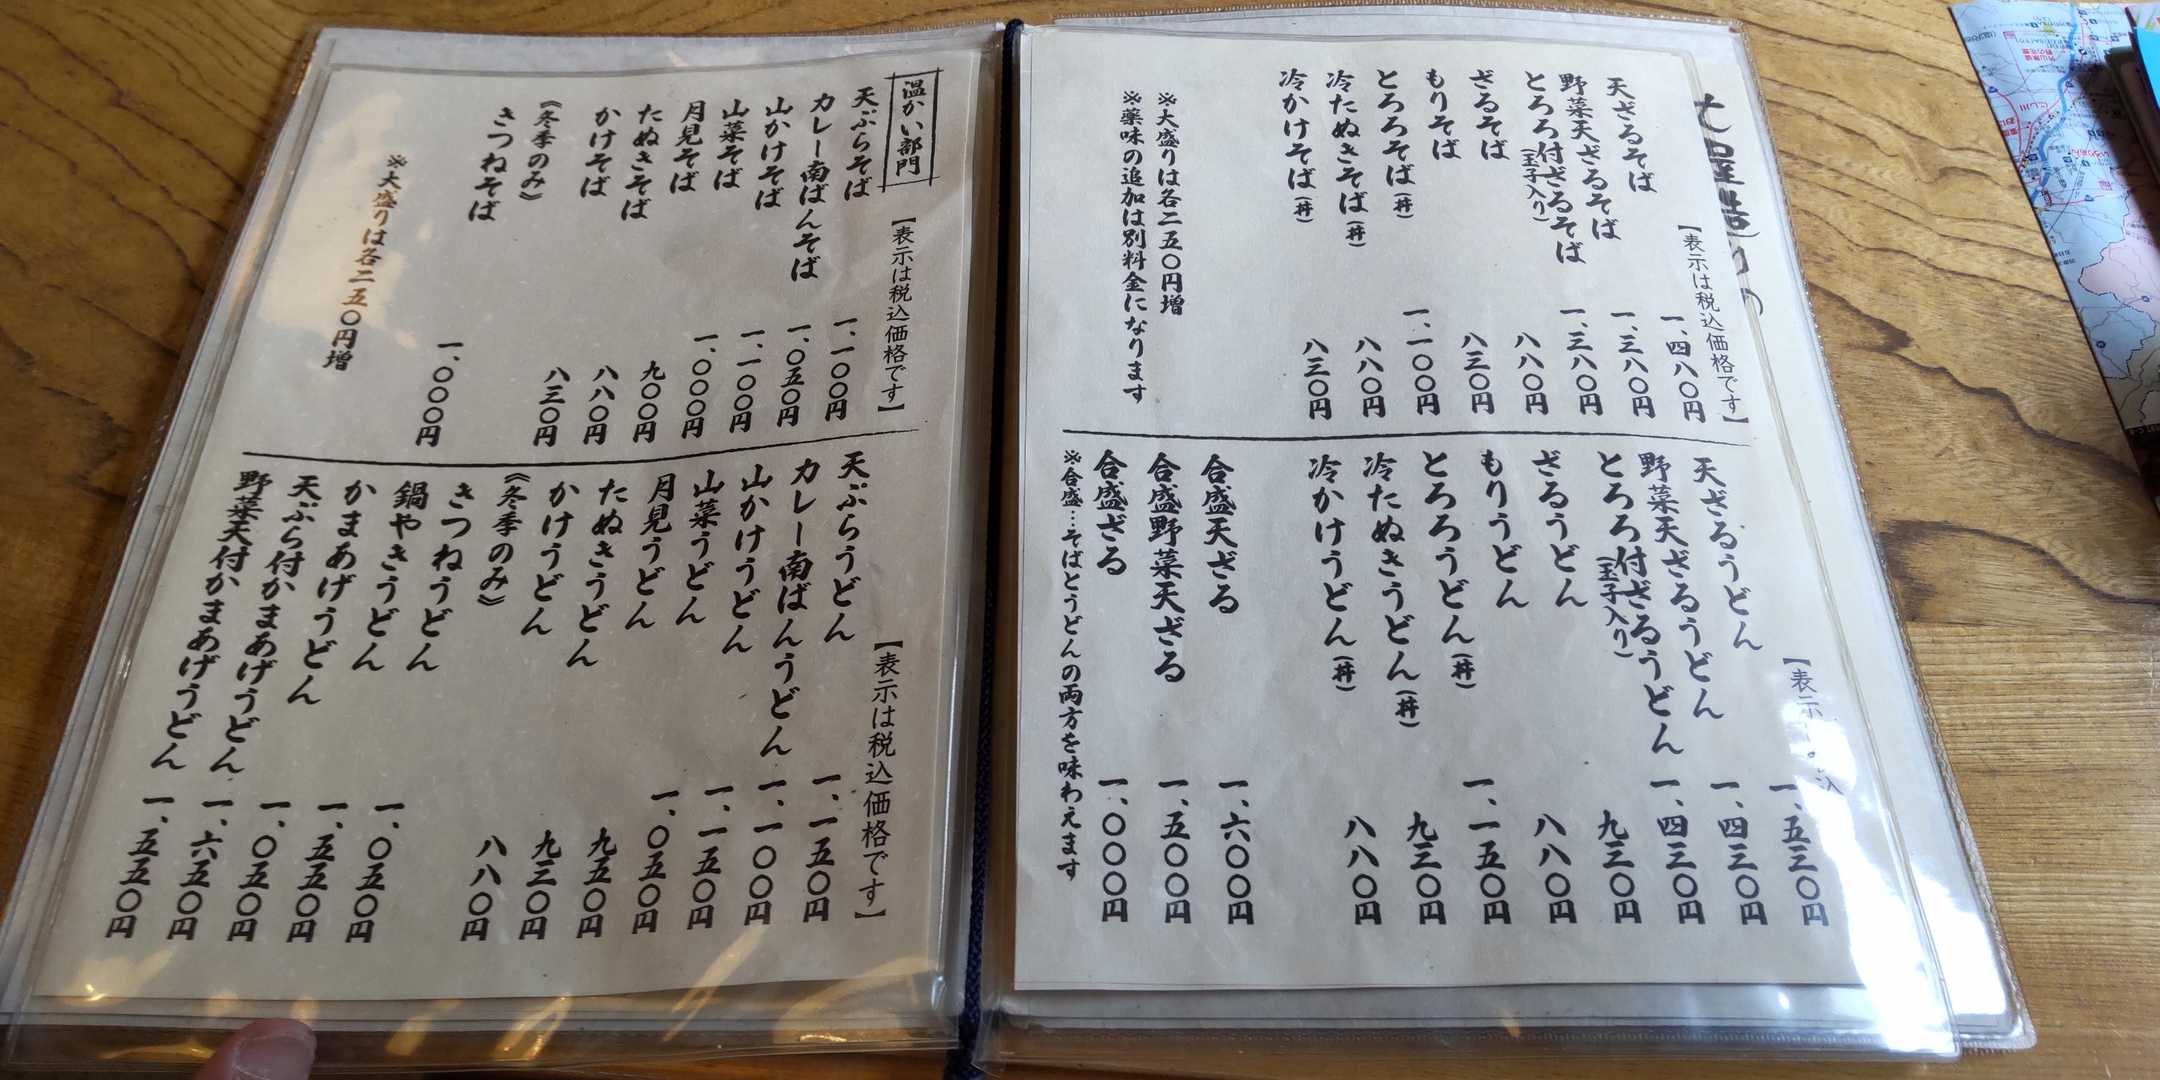 【表示は税込価格です】
天ざるそば 一、四八〇円
野菜天ざるそば 一、三八〇円
とろろ付ざるそば(玉子入り) 一、三八〇円
ざるそば 八八〇円
もりそば 八三〇円
とろろそば(丼) 一、一〇〇円
冷たぬきそば(丼) 八八〇円
冷かけそば(丼) 八三〇円
※大盛りは各二五〇円増
※薬味の追加は別料金になります
【表示
天ざるうどん 一、五三〇円
野菜天ざるうどん 一、四三〇円
とろろ付ざるうどん(玉子入り) 一、四三〇円
ざるうどん 九三〇円
もりうどん 八八〇円
とろろうどん(丼) 一、一五〇円
冷たぬきうどん(丼) 九三〇円
冷かけうどん(丼) 八八〇円
合盛天ざる 一、六〇〇円
合盛野菜天ざる 一、五〇〇円
合盛ざる 一、〇〇〇円
※合盛…そばとうどんの両方を味わえます
温かい部門
【表示は税込価格です】
天ぷらそば 一、一〇〇円
カレー南ばんそば 一、〇五〇円
山かけそば 一、一〇〇円
山菜そば 一、〇〇〇円
月見そば 九〇〇円
たぬきそば 八八〇円
かけそば 八三〇円
《冬季のみ》
きつねそば 一、〇〇〇円
※大盛りは各二五〇円増
【表示は税込価格です】
天ぷらうどん 一、一五〇円
カレー南ばんうどん 一、一〇〇円
山かけうどん 一、一五〇円
山菜うどん 一、〇五〇円
月見うどん 九五〇円
たぬきうどん 九三〇円
かけうどん 八八〇円
《冬季のみ》
きつねうどん 一、〇五〇円
鍋やきうどん 一、五五〇円
かまあげうどん 一、〇五〇円
天ぷら付かまあげうどん 一、六五〇円
野菜天付かまあげうどん 一、五五〇円